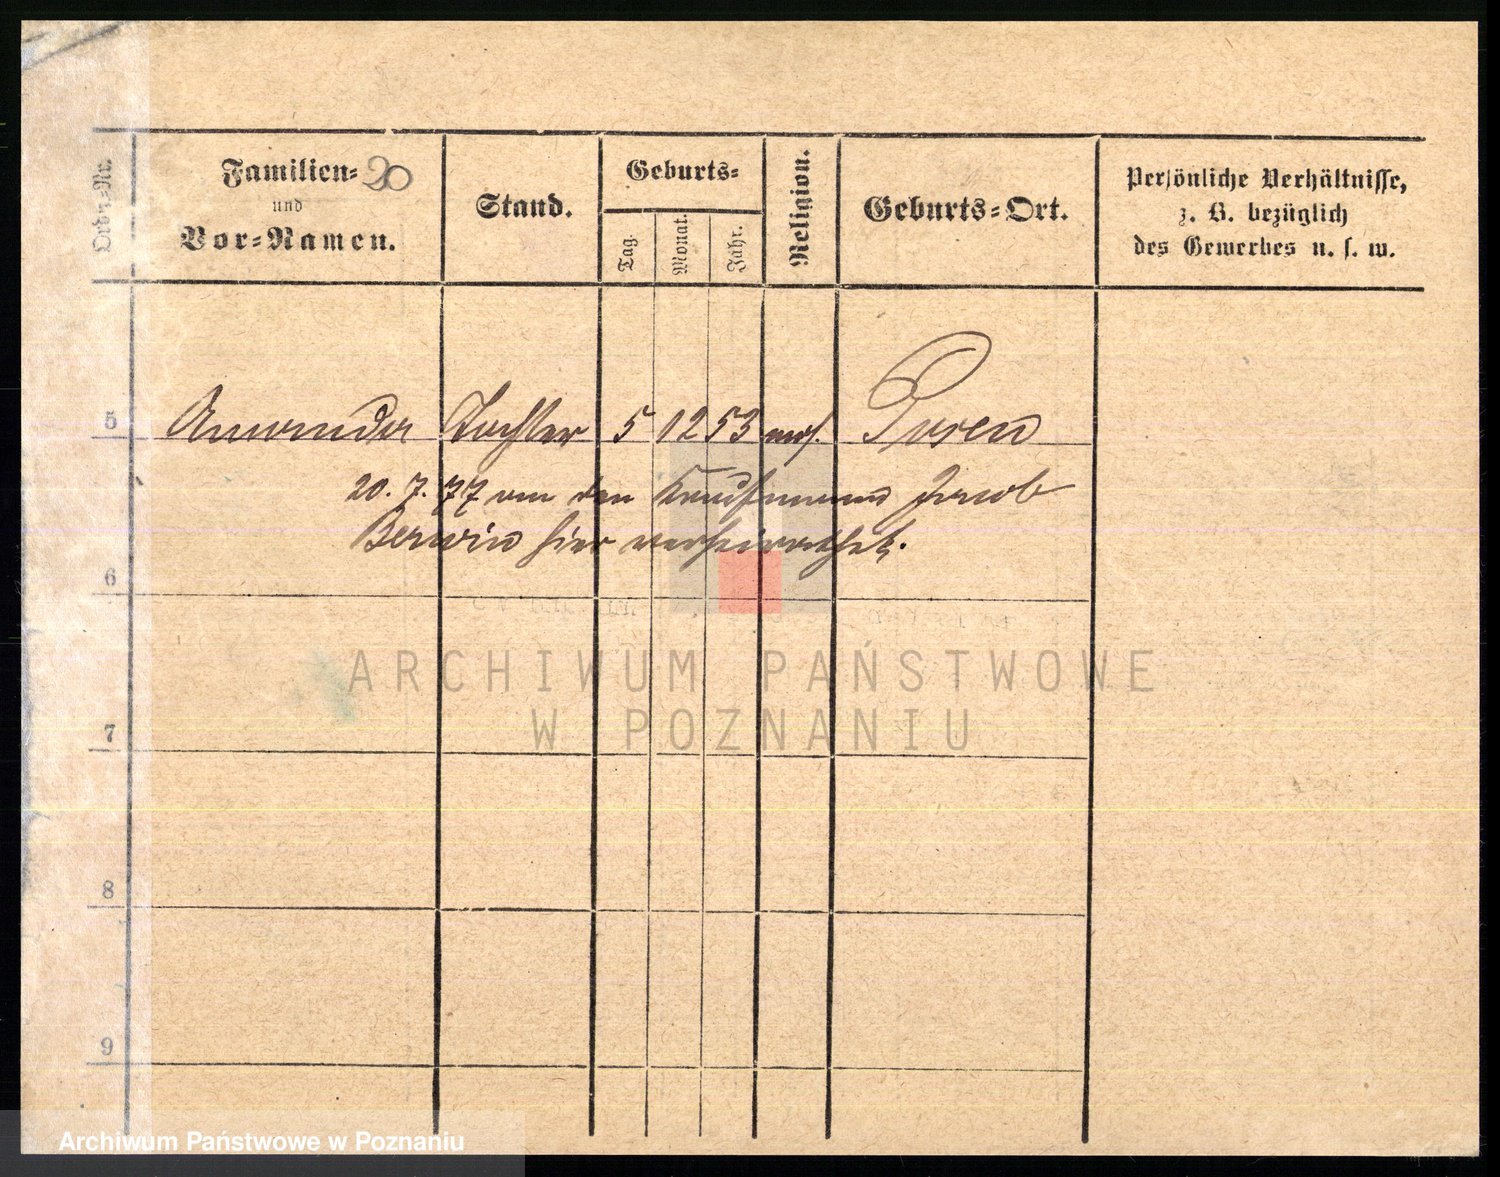 Ordn.-Nr.
Familien- 20
und
Vor-Namen.
Stand.
Geburts-
Tag.
Monat.
Jahr.
Religion.
Geburts-Ort.
Persönliche Verhältnisse,
z. B. bezüglich
des Gewerbes u. s. w.
5 Amanda Tochter 5 12 53 mos. Posen
20. 7. 77 an den Kaufmann Jacob
Berwin hier verheirathet.
6
7
8
9
ARCHIWUM PAŃSTWOWE
W POZNANIU
Archiwum Państwowe w Poznaniu